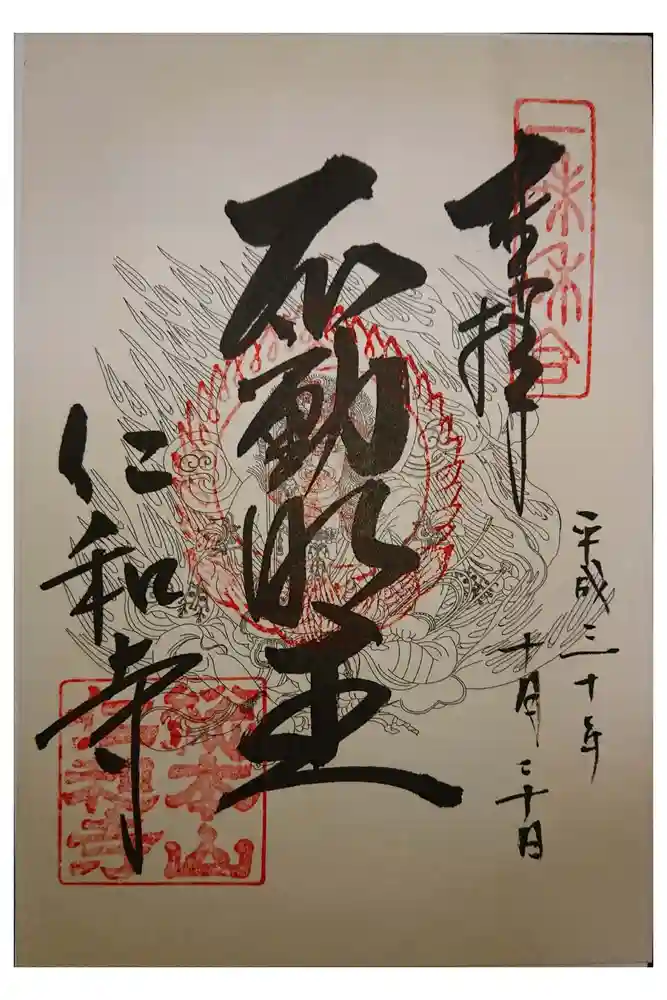 奉拝
一味和合
平成三十年
十月二十日
不動明王
仁和寺
総本山
仁和寺